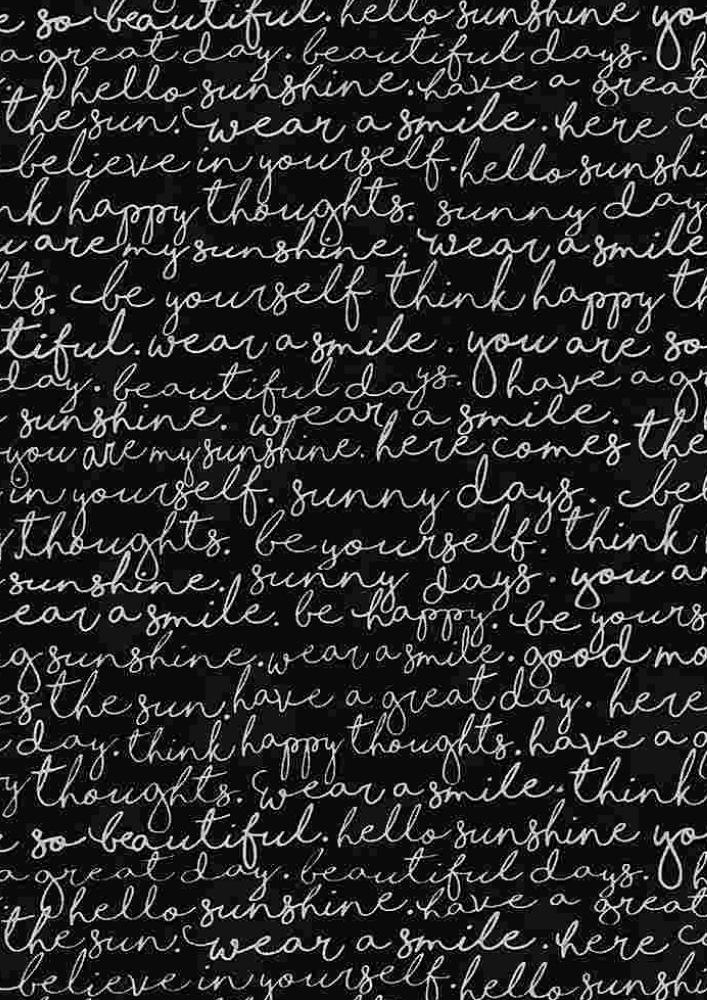 so beautiful. hello sunshine yo
a great day. beautiful days.
hello sunshine. have a great
the sun. wear a smile. here co
believe in yourself. hello sunshi
nk happy thoughts. sunny day
u are my sunshine. wear a smile
ts. be yourself think happy th
tiful. wear a smile. you are so
day. beautiful days. have a gr
sunshine. wear a smile.
you are my sunshine. here comes the
in yourself. sunny days. bel
thoughts. be yourself. think
sunshine. sunny days. you ar
ear a smile. be happy. be yours
g sunshine. wear a smile. good mo
es the sun. have a great day. here
day. think happy thoughts. have a g
y thoughts. wear a smile. think
so beautiful. hello sunshine yo
a great day. beautiful days.
hello sunshine. have a great
the sun. wear a smile. here co
believe in yourself. hello sunshi